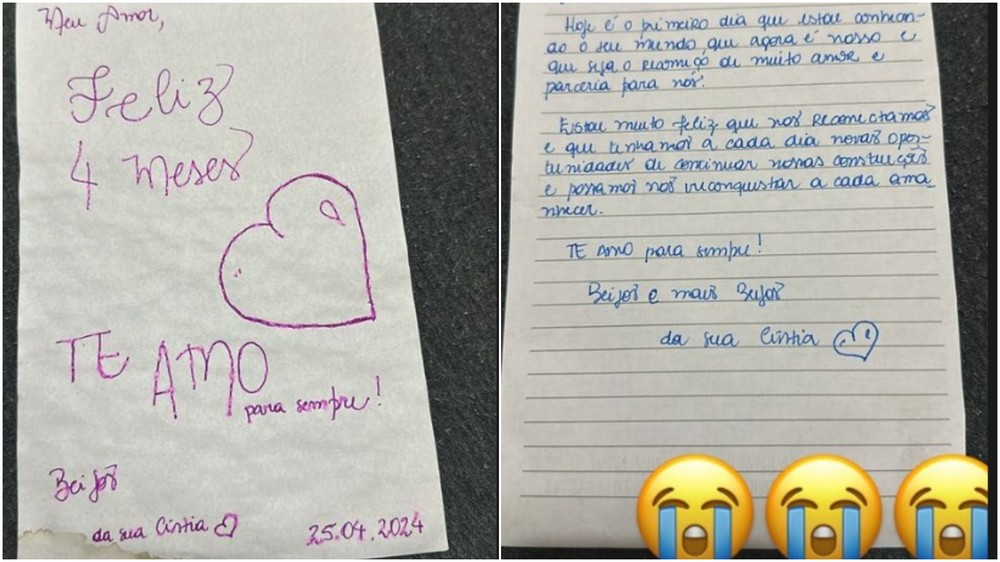 Meu Amor,
Feliz
4 Meses
TE AMO
para sempre!
Beijos
da sua Cintia
25.04.2024
Hoje é o primeiro dia que estou conhecen-
do o seu mundo, que agora é nosso e
que seja o recomeço de muito amor e
parceria para nós.
Estou muito feliz que nos reconectamos
e que tenhamos a cada dia novas opor-
tunidades de continuar nossas construções
e possamos nos reconquistar a cada ama-
nhecer.
TE AMO para sempre!
Beijos e mais Beijos
da sua Cintia